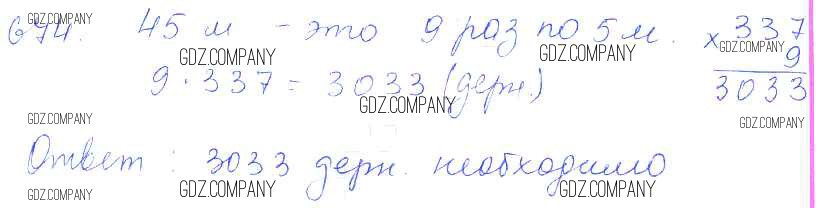 674. 45 м - это 9 раз по 5 м. × 337
9
9 · 337 = 3033 (держ.) 3033
Ответ : 3033 держ. необходимо
GDZ.COMPANY
GDZ.COMPANY
GDZ.COMPANY
GDZ.COMPANY
GDZ.COMPANY
GDZ.COMPANY
GDZ.COMPANY
GDZ.COMPANY
GDZ.COMPANY
GDZ.COMPANY
GDZ.COMPANY